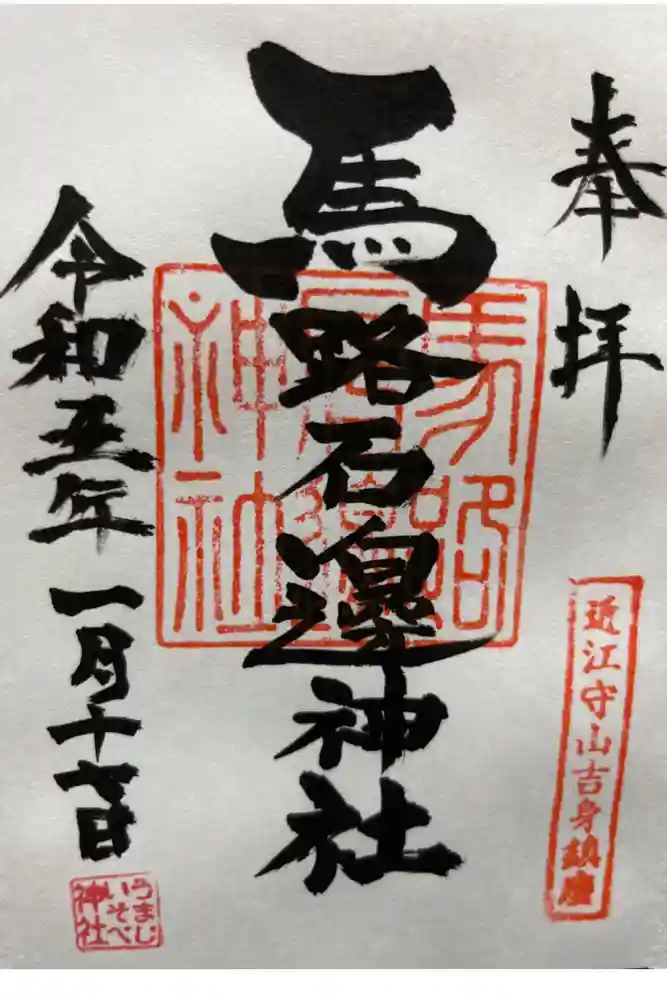 奉拝
近江守山吉身鎮座
馬路石邊神社
馬路石邊神社
令和五年一月十七日
うまじ
いそべ
神社